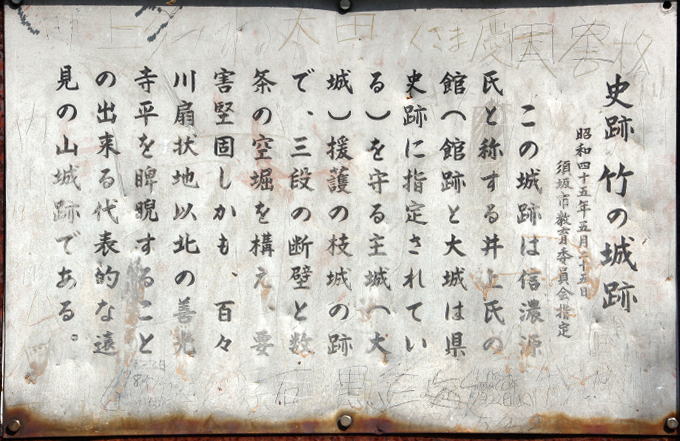 史跡 竹の城跡
昭和四十五年五月二十五日
須坂市教育委員会指定
この城跡は信濃源
氏と称する井上氏の
館（館跡と大城は県
史跡に指定されてい
る）を守る主城（大
城）援護の枝城の跡
で、三段の断壁と数
条の空堀を構え、要
害堅固しかも、百々
川扇状地以北の善光
寺平を睥睨すること
の出来る代表的な遠
見の山城跡である。